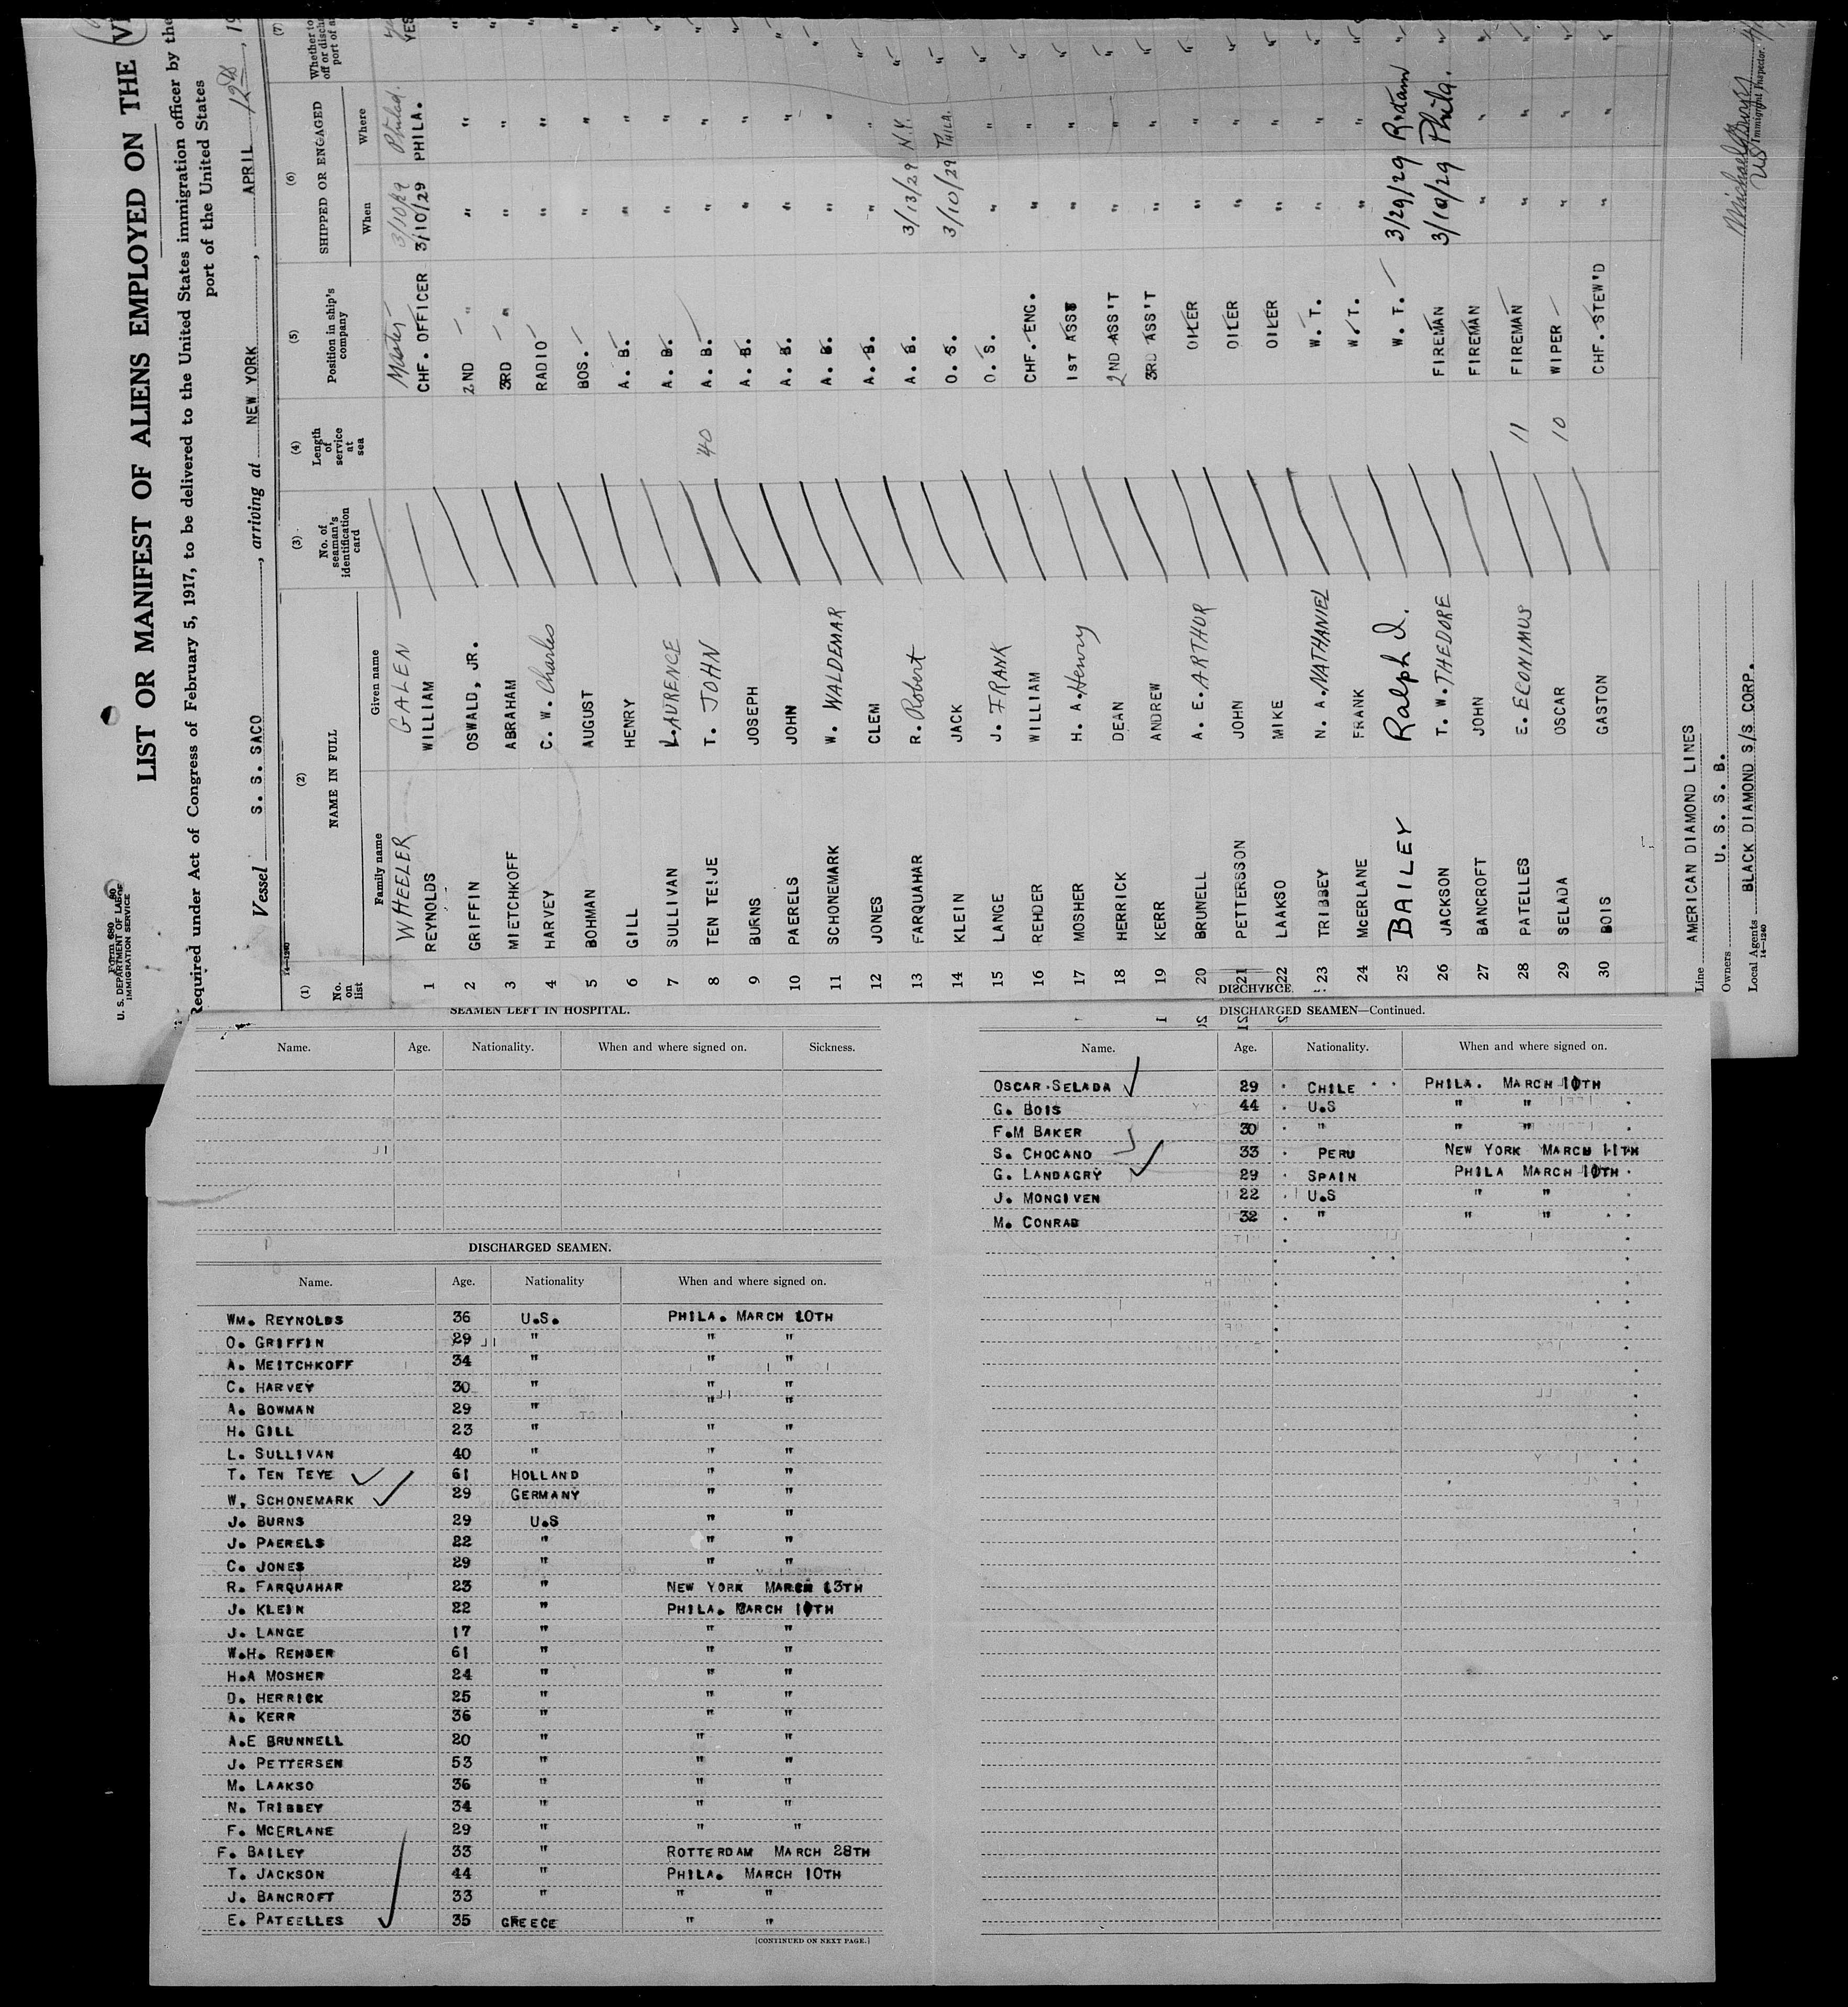 Form 680
U. S. DEPARTMENT OF LABOR
IMMIGRATION SERVICE
LIST OR MANIFEST OF ALIENS EMPLOYED ON THE
Required under Act of Congress of February 5, 1917, to be delivered to the United States immigration officer by the
port of the United States
Vessel S. S. SACO, arriving at NEW YORK, APRIL 12th, 19
(1) (2) (3) (4) (5) (6) (7)
No. on list NAME IN FULL No. of seaman's identification card Length of service at sea Position in ship's company SHIPPED OR ENGAGED Whether to
Family name Given name When Where
WHEELER GALEN Master 3/10/29 Philad.
1 REYNOLDS WILLIAM CHF. OFFICER 3/10/29 PHILA. YES
2 GRIFFIN OSWALD, JR. 2ND " " " "
3 MIETCHKOFF ABRAHAM 3RD " " " "
4 HARVEY C. W. Charles RADIO " " "
5 BOHMAN AUGUST BOS. " " "
6 GILL HENRY A. B. " " "
7 SULLIVAN L. LAURENCE A. B. " " "
8 TEN TEIJE T. JOHN 40 A. B. " " "
9 BURNS JOSEPH A. B. " " "
10 PAERELS JOHN A. B. " " "
11 SCHONEMARK W. WALDEMAR A. B. " " "
12 JONES CLEM A. B. " " "
13 FARQUAHAR R. Robert A. B. 3/13/29 N.Y. "
14 KLEIN JACK O. S. 3/10/29 PHILA. "
15 LANGE J. FRANK O. S. " " "
16 REHDER WILLIAM CHF. ENG. " " "
17 MOSHER H. A. Henry 1ST ASST " " "
18 HERRICK DEAN 2ND ASS'T " " "
19 KERR ANDREW 3RD ASS'T " " "
20 BRUNELL A. E. ARTHUR OILER " " "
21 PETTERSSON JOHN OILER " " "
22 LAAKSO MIKE OILER " " "
23 TRIBBEY N. A. NATHANIEL W. T. " " "
24 McERLANE FRANK W. T. " " "
25 BAILEY Ralph I. W. T. 3/29/29 R'dam "
26 JACKSON T. W. THEDORE FIREMAN 3/10/29 Phila. "
27 BANCROFT JOHN FIREMAN " " "
28 PATELLES E. ECONIMUS 11 FIREMAN " " "
29 SELADA OSCAR 10 WIPER " " "
30 BOIS GASTON CHF. STEW'D " " "
Line AMERICAN DIAMOND LINES
Owners U. S. S. B.
Local Agents BLACK DIAMOND S/S CORP.
14—1240
US Immigrant Inspector.
SEAMEN LEFT IN HOSPITAL.
Name. Age. Nationality. When and where signed on. Sickness.
DISCHARGED SEAMEN.
Name. Age. Nationality When and where signed on.
WM. REYNOLDS 36 U.S. PHILA. MARCH 10TH
O. GRIFFIN 29 " " "
A. MEITCHKOFF 34 " " "
C. HARVEY 30 " " "
A. BOWMAN 29 " " "
H. GILL 23 " " "
L. SULLIVAN 40 " " "
T. TEN TEYE 61 HOLLAND " "
W. SCHONEMARK 29 GERMANY " "
J. BURNS 29 U.S " "
J. PAERELS 22 " " "
C. JONES 29 " " "
R. FARQUAHAR 23 " NEW YORK MARCH 13TH
J. KLEIN 22 " PHILA. MARCH 10TH
J. LANGE 17 " " "
W.H. REHDER 61 " " "
H.A MOSHER 24 " " "
D. HERRICK 25 " " "
A. KERR 36 " " "
A.E BRUNNELL 20 " " "
J. PETTERSEN 53 " " "
M. LAAKSO 36 " " "
N. TRIBBEY 34 " " "
F. MCERLANE 29 " " "
F. BAILEY 33 " ROTTERDAM MARCH 28TH
T. JACKSON 44 " PHILA. MARCH 10TH
J. BANCROFT 33 " " "
E. PATEELLES 35 GREECE " "
[CONTINUED ON NEXT PAGE.]
DISCHARGED SEAMEN—Continued.
Name. Age. Nationality. When and where signed on.
OSCAR SELADA 29 CHILE PHILA. MARCH 10TH
G. BOIS 44 U.S " "
F.M BAKER 30 " " "
S. CHOCANO 33 PERU NEW YORK MARCH 11TH
G. LANDAGRY 29 SPAIN PHILA MARCH 10TH
J. MONGIVEN 22 U.S " "
M. CONRAD 32 " " "